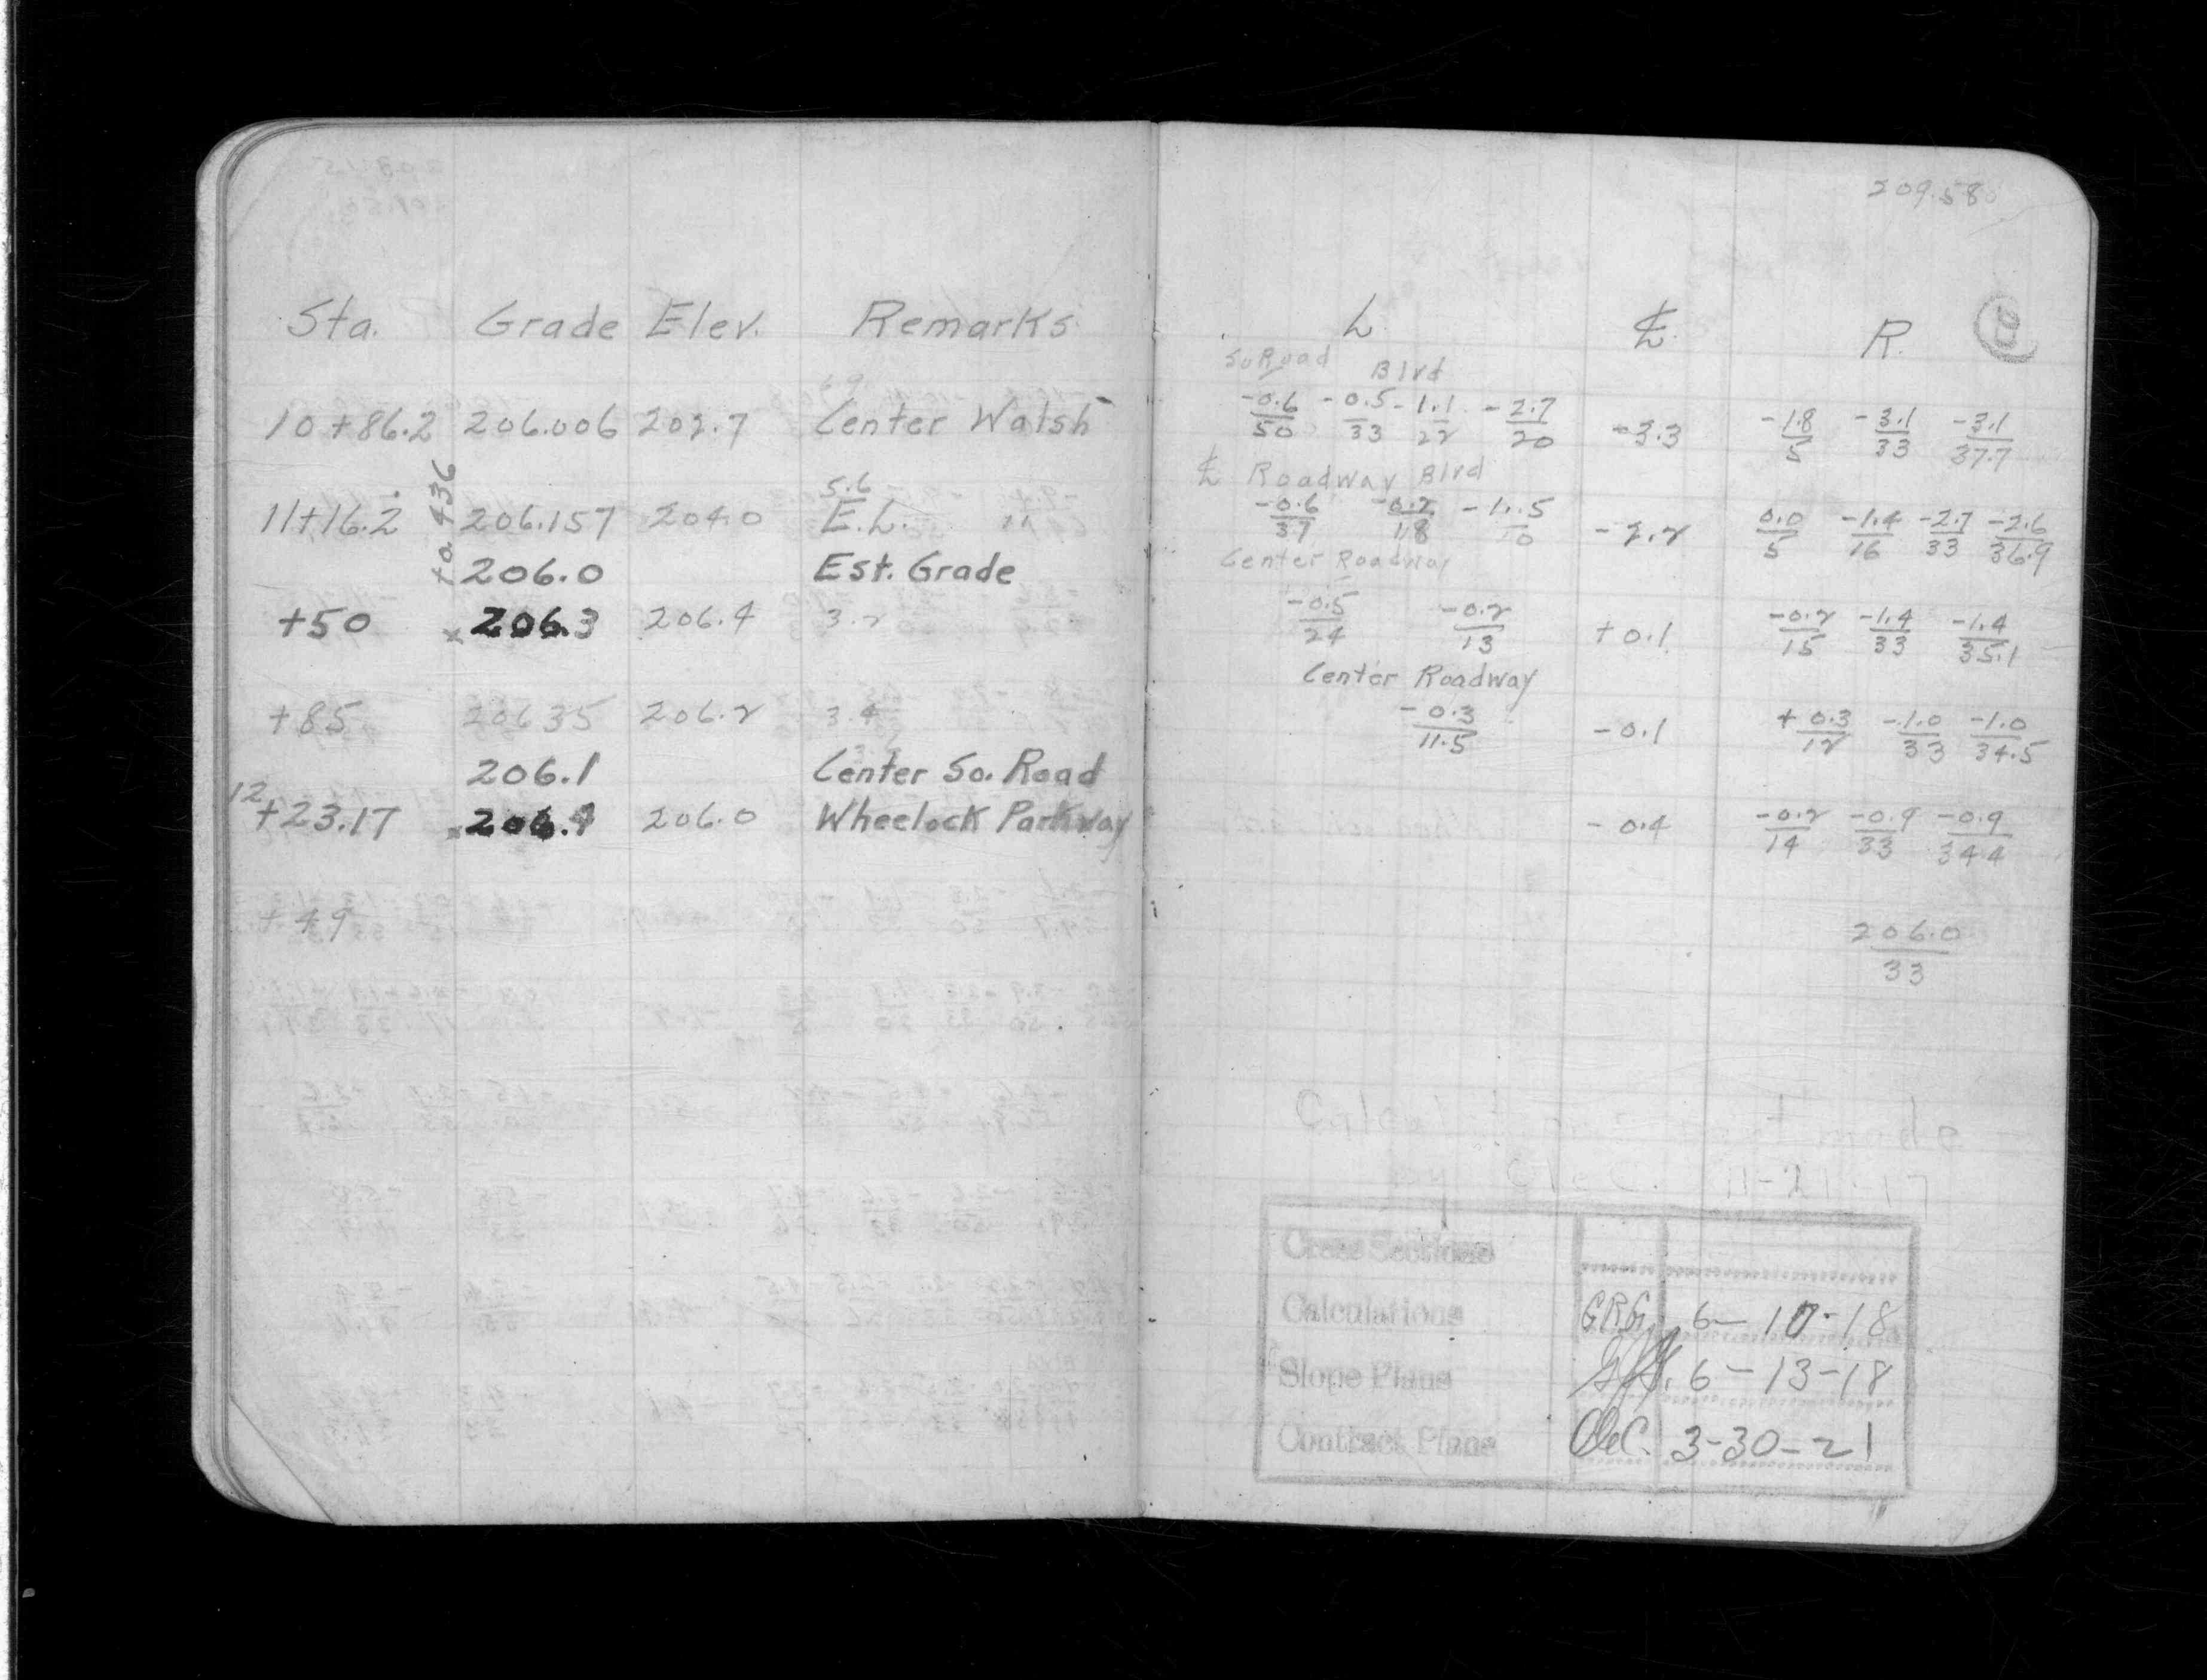 Sta. Grade Elev. Remarks
6.9
10+86.2 206.006 202.7 Center Walsh
+0.436
5.6
11+16.2 206.157 204.0 E.L.
206.0 Est. Grade
+50 x 206.3 206.4 3.2
+85 206.35 206.2 3.4
206.1 Center So. Road
12+23.17 x 206.4 206.0 Wheelock Parkway
+49
209.58
L ℄ R.
So Road Blvd
-0.6/50 -0.5/33 -1.1/22 -2.7/20 -3.3 -1.8/5 -3.1/33 -3.1/37.7
℄ Roadway Blvd
-0.6/37 -0.2/18 -1.5/10 -2.2 0.0/5 -1.4/16 -2.7/33 -2.6/36.9
Center Roadway
-0.5/24 -0.2/13 +0.1 -0.2/15 -1.4/33 -1.4/35.1
Center Roadway
-0.3/11.5 -0.1 +0.3/12 -1.0/33 -1.0/34.5
-0.4 -0.2/14 -0.9/33 -0.9/34.4
206.0/33
made
by C.le C. 11-21-17
Cross Sections
Calculations GRG 6-10-18
Slope Plans 6-13-18
Contract Plans CleC. 3-30-21